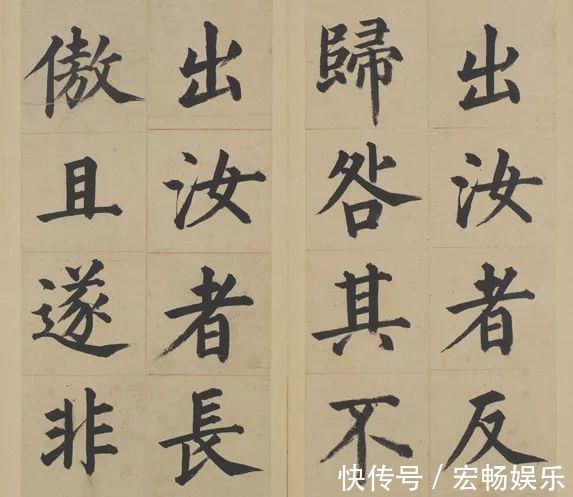 出汝者反
歸咎其不
出汝者長
傲且遂非
快传号／宏畅娱乐